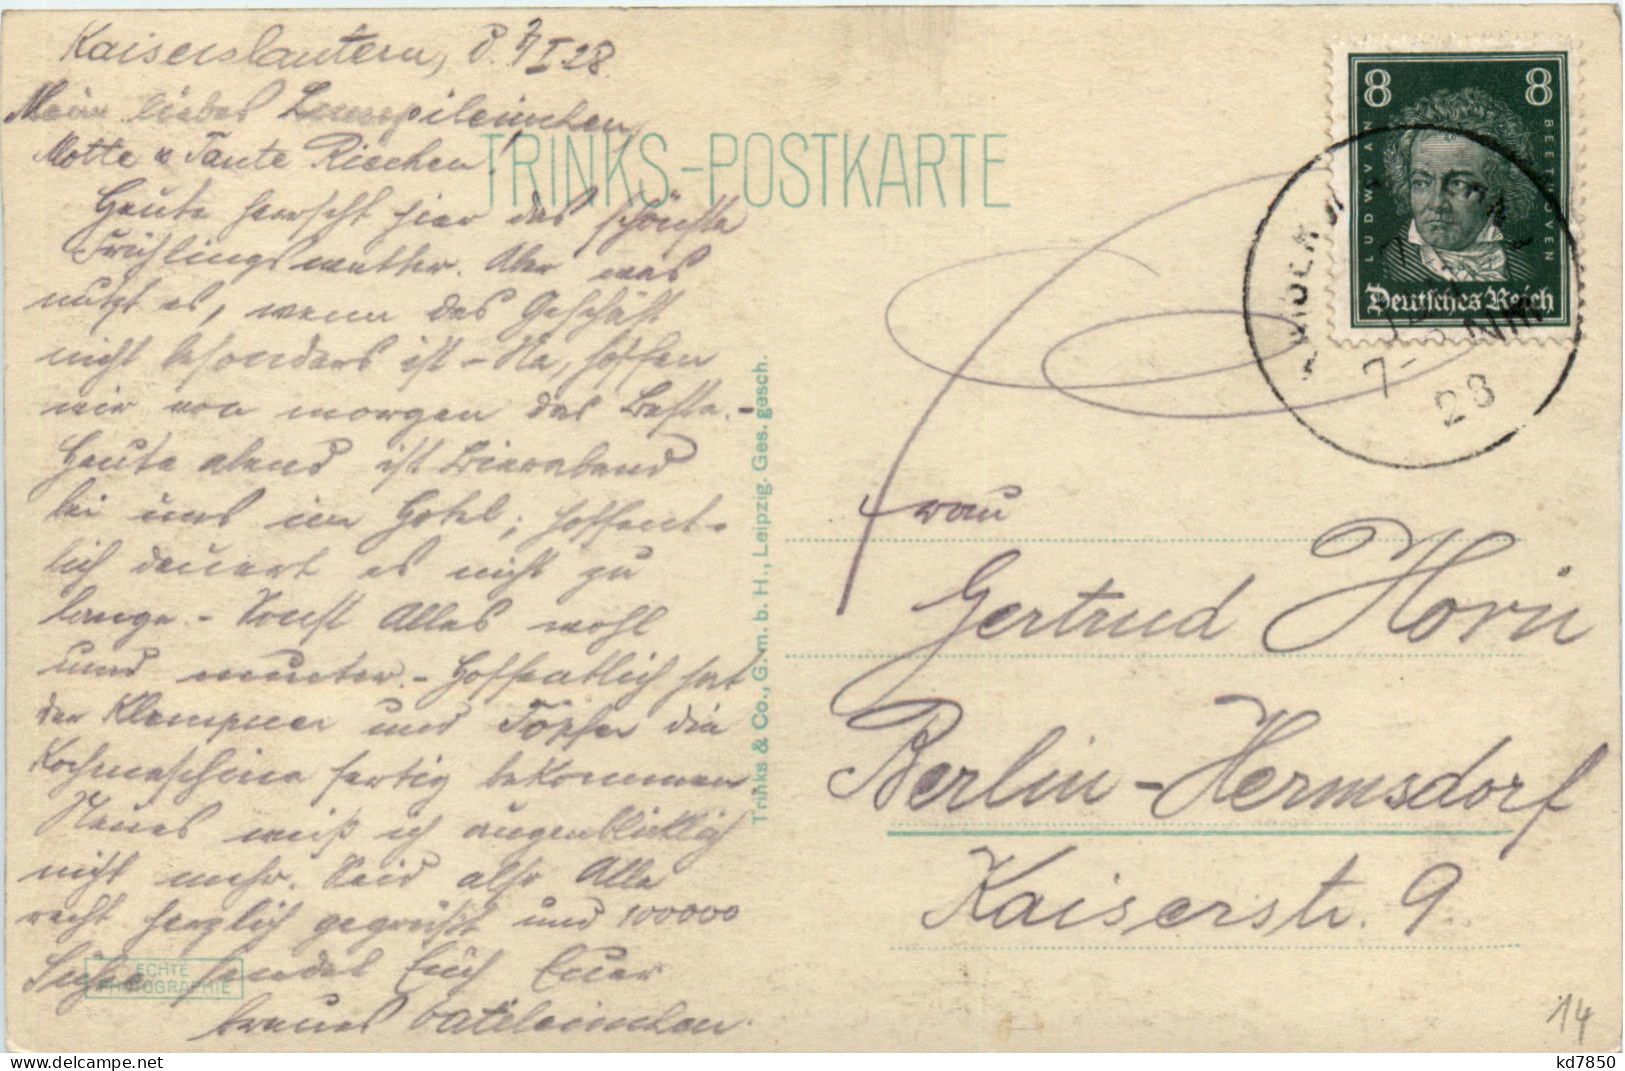 Kaiserslautern, d. 7/I 28.
Mein liebes
Motte u Tante Riechen!
Heute herrscht hier das schönste
Frühlingswetter. Aber was
nutzt es, wenn das Geschäft
nicht besonders ist - Na, hoffen
wir von morgen das Beste. -
Heute abend ist Bierabend
bei uns im Hotel; hoffent-
lich dauert es nicht zu
lange. - Sonst Alles wohl
und munter. - Hoffentlich hat
der Klempner und Töpfer die
Kochmaschine fertig bekommen
Neues weiß ich augenblicklich
nicht mehr. Seid also Alle
recht herzlich gegrüßt und 100000
sendet Euch Euer
treues Väteleinchen.
TRINKS-POSTKARTE
ECHTE
PHOTOGRAPHIE
Trinks & Co., G. m. b. H., Leipzig. Ges. gesch.
8 8
LUDWIG VAN BEETHOVEN
Deutsches Reich
7-8 NM
28
Frau
Gertrud Horn
Berlin-Hermsdorf
Kaiserstr. 9
14
kd7850